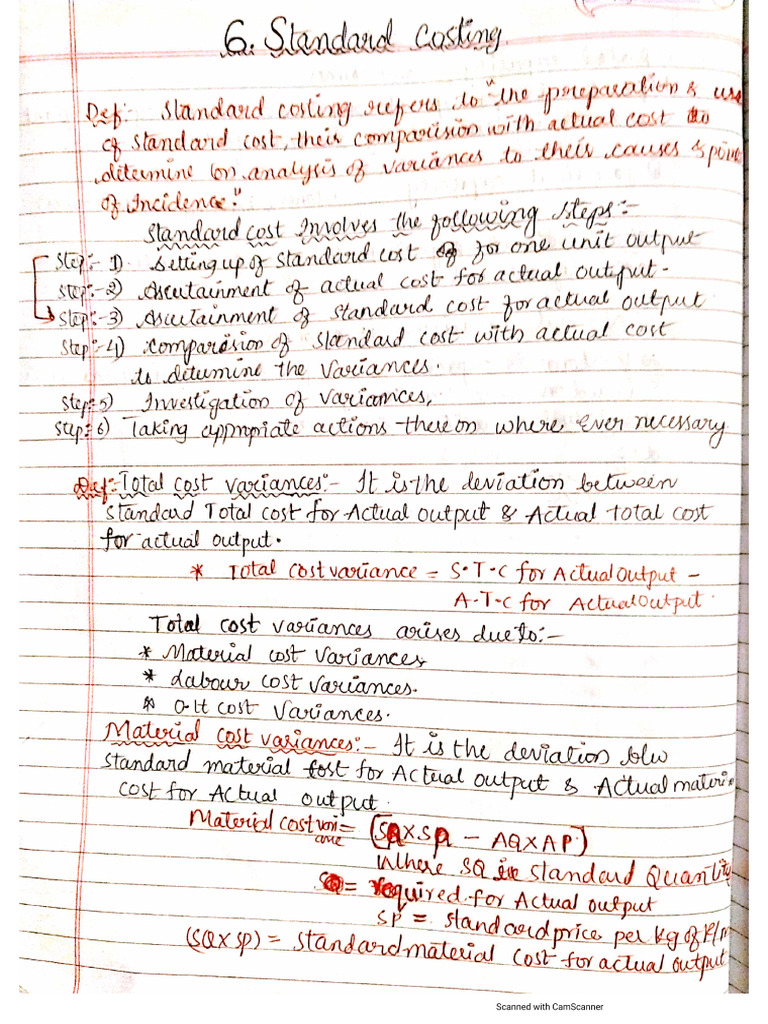 6. Standard Costing.
Def:- Standard costing refers to "the preparation & use
of standard cost, their comparision with actual cost to
determine (on analysis of variances to their causes & point
of incidence."
Standard cost Involves the following steps:-
Step:- 1) Setting up of standard cost for one unit output
Step:-2) Ascertainment of actual cost for actual output.
Step:-3) Ascertainment of standard cost for actual output
Step:-4) comparision of standard cost with actual cost
to determine the variances.
Step:-5) Investigation of variances,
Step:-6) Taking appropiate actions thereon where ever necessary
Def:- Total cost variances:- It is the deviation between
standard Total cost for Actual output & Actual total cost
for actual output.
* Total cost variance = S.T.C for Actual Output -
A.T.C for Actual Output.
Total cost variances arises due to:-
* Material cost variances,
* Labour cost variances.
* O.H cost Variances.
Material cost variances:- It is the deviation b/w
standard material cost for Actual output & Actual materi
cost for Actual output.
Material cost vari = [SQ X SP - AQ X AP]
ance
Where SQ is standard Quantity
= required for Actual output
SP = standard price per kg of R/m
(SQ X SP) = standard material cost for actual output
Scanned with CamScanner